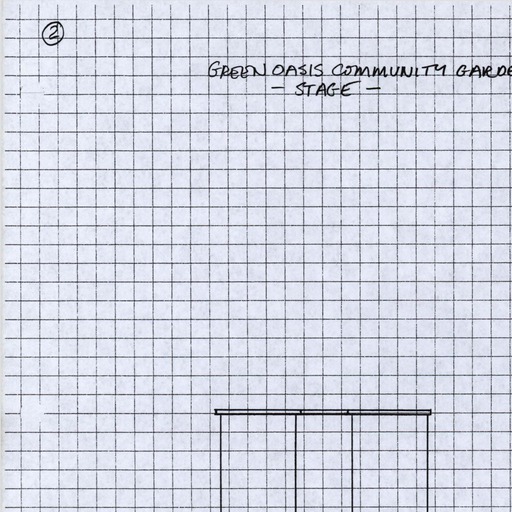 2
GREEN OASIS COMMUNITY GARDE
- STAGE -